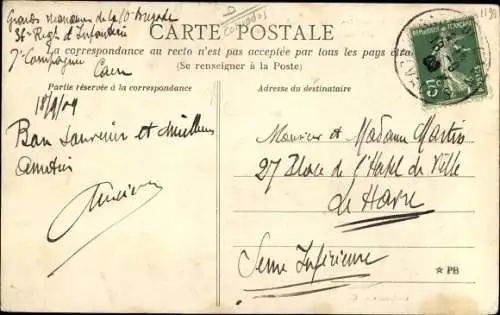 Grandes manoeuvres de la 10e Brigade
36e Regt d'Infanterie
7e Compagnie
Caen
CARTE POSTALE
La correspondance au recto n'est pas acceptée par tous les pays étran
(Se renseigner à la Poste)
Partie réservée à la correspondance
Adresse du destinataire
RÉPUBLIQUE FRANÇAISE
5c
POSTES
18/9/09
Bon souvenir et meilleures
amitiés
Lucien
Monsieur et Madame Martin
27 Place de l'Hotel de Ville
Le Havre
Seine Inférieure
★ PB